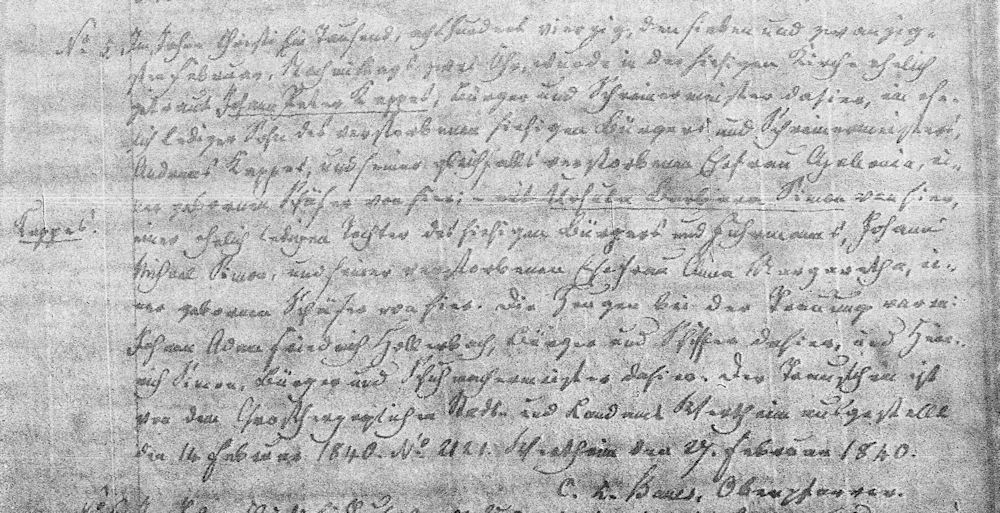 No 5 Im Jahre Christi Ein Tausend, achthundert vierzig, den sieben und zwanzig-
sten Februar, Nachmittags zwei Uhr, wurde in der hiesigen Kirche ehelich
getraut Johann Peter Kappes, Bürger und Schreinermeister dahier, ein ehe-
lich lediger Sohn des verstorbenen hiesigen Bürgers und Schreinermeisters,
Andreas Kappes, und seiner gleichfalls verstorbenen Ehefrau Apolonia, ei-
ner gebornen Schäfer von hier; – mit Barbara Simon von hier,
Kappes.
einer ehelich ledigen Tochter des hiesigen Bürgers und Fuhrmanns, Johann
Michael Simon, und seiner verstorbenen Ehefrau Anna Margaretha, ei-
ner gebornen Schäfer von hier. Die Zeugen bei der Trauung waren:
Johann Adam Friedrich Hollerbach, Bürger und Schiffer dahier, und Hein-
rich Simon, Bürger und Schuhmachermeister dahier. Der Trauschein ist
von dem Großherzoglichen Stadt- und Landamt Wertheim ausgestellt
den 14 Februar 1840. No 2121. Wertheim den 27. Februar 1840.
Oberpfarrer.